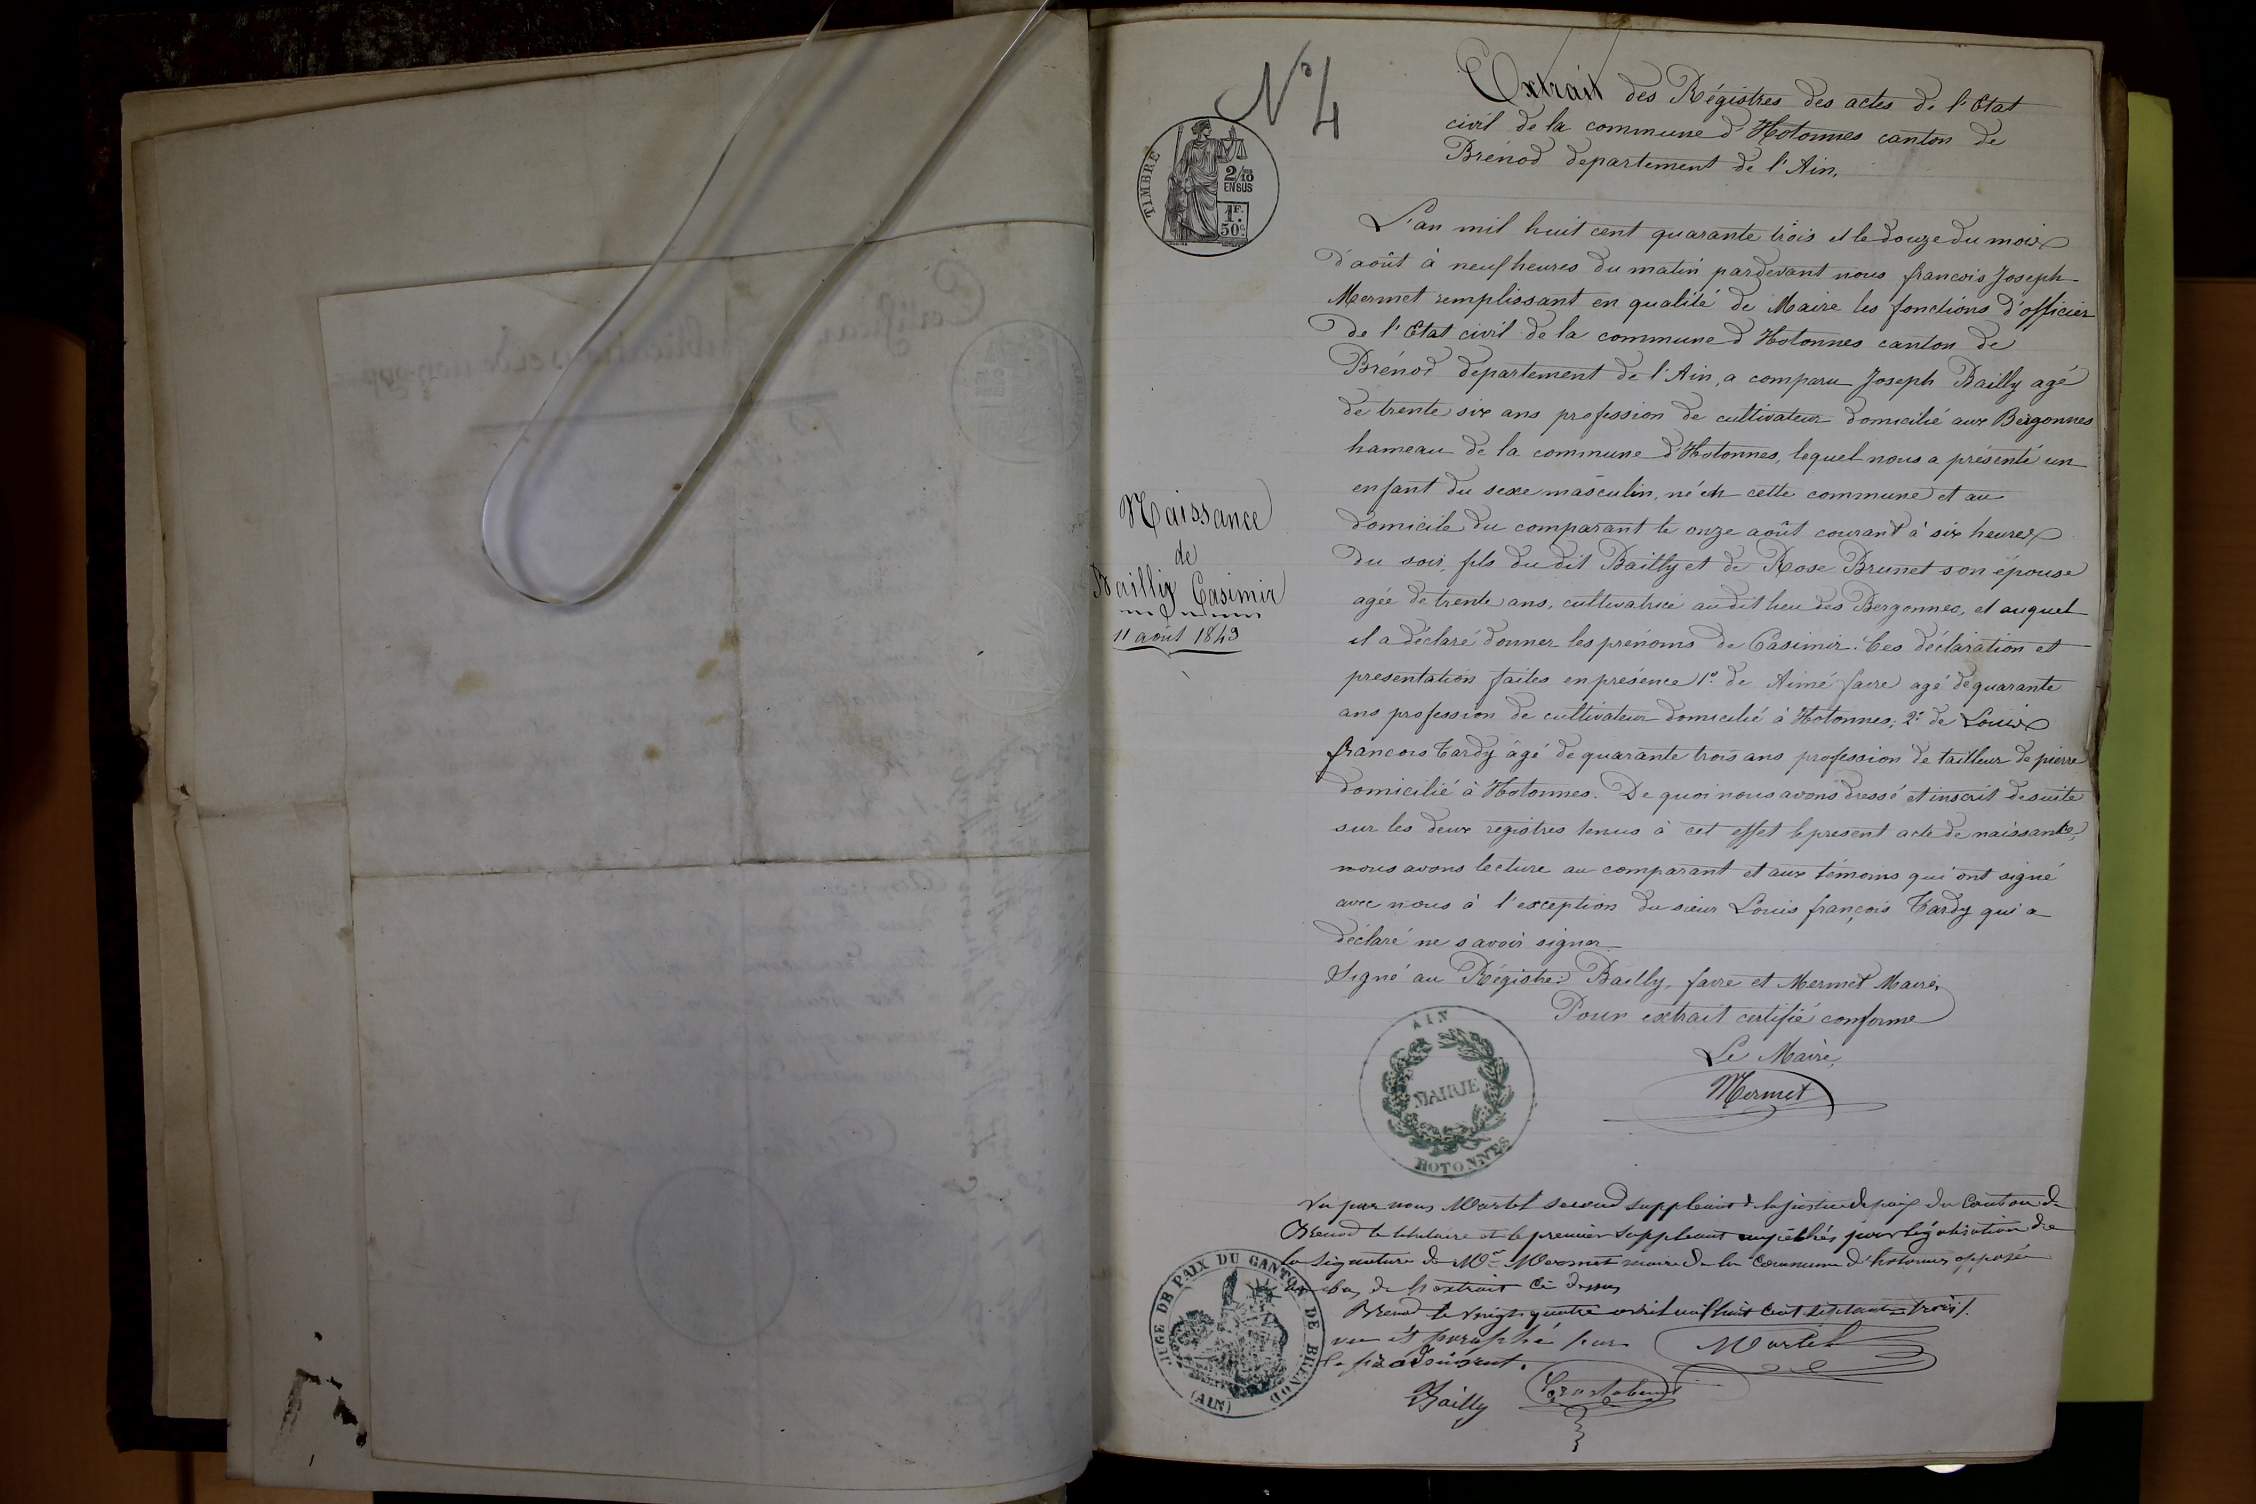 N° 4
TIMBRE
2/10
EN SUS
1F.
50c
Extrait des Régistres des actes de l'Etat
civil de la commune d'Hotonnes canton de
Brénod departement de l'Ain.
L'an mil huit cent quarante trois et le douze du mois
d'août à neuf heures du matin pardevant nous francois Joseph
Mermet remplissant en qualité de Maire les fonctions d'officier
de l'Etat civil de la commune d'Hotonnes canton de
Brénod departement de l'Ain, a comparu Joseph Bailly agé
de trente six ans profession de cultivateur domicilié aux Bergonnes
hameau de la commune d'Hotonnes, lequel nous a présenté un
enfant du sexe masculin, né en cette commune et au
domicile du comparant le onze août courant à six heures
du soir, fils du dit Bailly et de Rose Brunet son épouse
agée de trente ans, cultivatrice audit lieu des Bergonnes, et auquel
il a déclaré donner les prénoms de Casimir. Ces déclaration et
presentation faites en présence 1° de Aimé favre agé de quarante
ans profession de cultivateur domicilié à Hotonnes; 2° de Louis
francois Tardy âgé de quarante trois ans profession de tailleur de pierre
domicilié à Hotonnes. De quoi nous avons dressé et inscrit desuite
sur les deux registres tenus à cet effet le present acte de naissance,
nous avons lecture au comparant et aux témoins qui ont signé
avec nous à l'exception du sieur Louis françois Tardy qui a
déclaré ne savoir signer
Signé au Régistre: Bailly, favre et Mermet Maire,
Pour extrait certifié conforme
Le Maire,
Mermet
Naissance
de
Bailly Casimir
11 août 1843
AIN
MAIRIE
HOTONNES
Vu par nous Martel second suppleant de la justice de paix du Canton de
Brenod le titulaire et le premier suppleant empêchés pour légalisation de
la signature de Mr Mermet maire de la Commune d'hotonnes apposée
au bas de l'extrait ci dessus
Brenod le vingt quatre avril mil huit cent septante trois.
vu et paraphé par
le présent.
Martel
Bailly
JUGE DE PAIX DU CANTON DE BRENOD
(AIN)